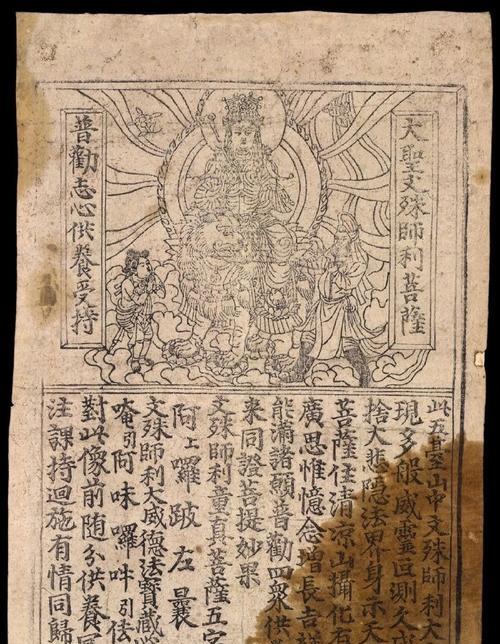 大聖文殊師利菩薩
普勸志心供養受持
此五臺山中文殊師利大
現多般威靈叵測久
捨大悲隱法界身示天
菩薩住清凉山攝化有
廣思惟憶念增長吉祥
能滿諸願普勸四衆供
來同證菩提妙果
文殊師利童真菩薩五字
阿上囉跛左曩
文殊師利大威德法寶藏
唵引阿味囉吽引佉
對此像前随分供養
注課持迴施有情同歸